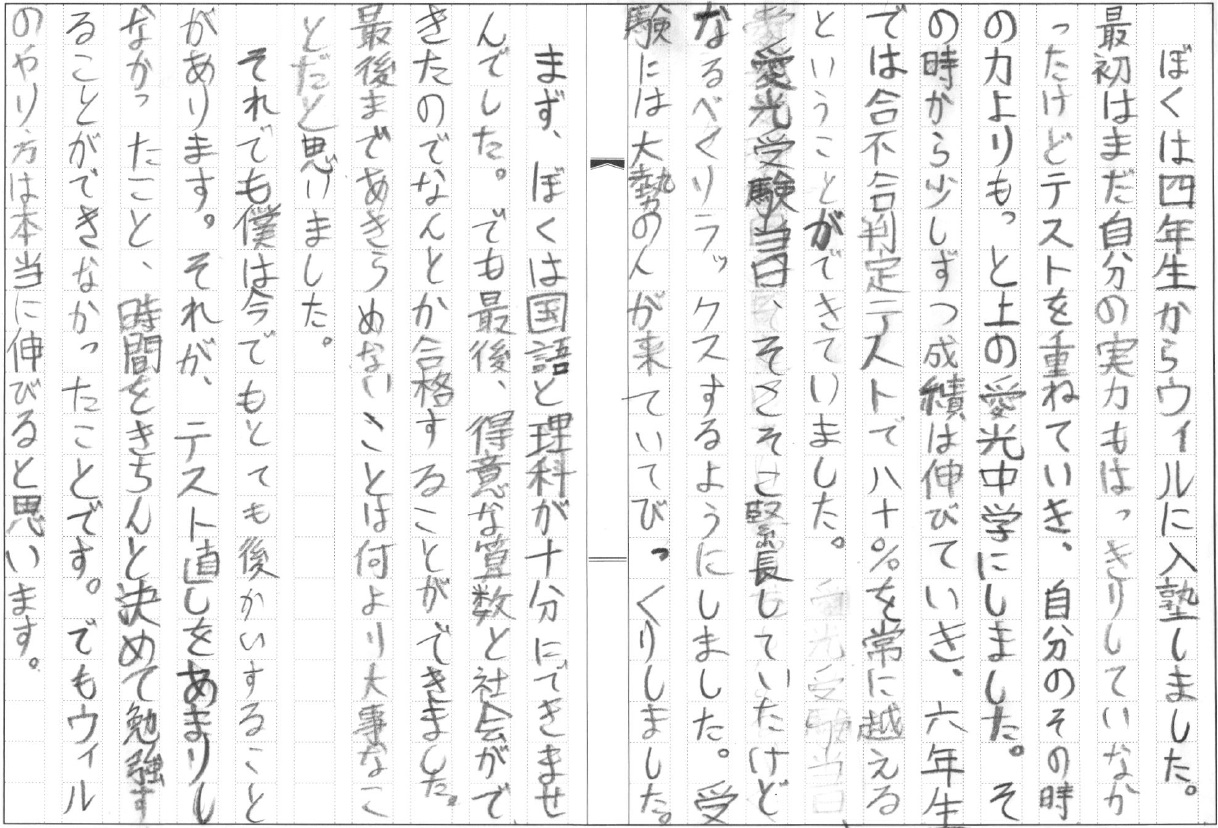 ぼくは四年生からウィルに入塾しました。
最初はまだ自分の実力もはっきりしていなか
ったけどテストを重ねていき、自分のその時
の力よりもっと上の愛光中学にしました。そ
の時から少しずつ成績は伸びていき、六年生
では合不合判定テストで八十％を常に越える
ということができていました。
愛光受験当日、そこそこ緊長していたけど
なるべくリラックスするようにしました。受
験には大勢の人が来ていてびっくりしました。
まず、ぼくは国語と理科が十分にできませ
んでした。でも最後、得意な算数と社会がで
きたのでなんとか合格することができました。
最後まであきらめないことは何より大事なこ
とだと思いました。
それでも僕は今でもとても後かいすること
があります。それが、テスト直しをあまりし
なかったこと、時間をきちんと決めて勉強す
ることができなかったことです。でもウィル
のやり方は本当に伸びると思います。